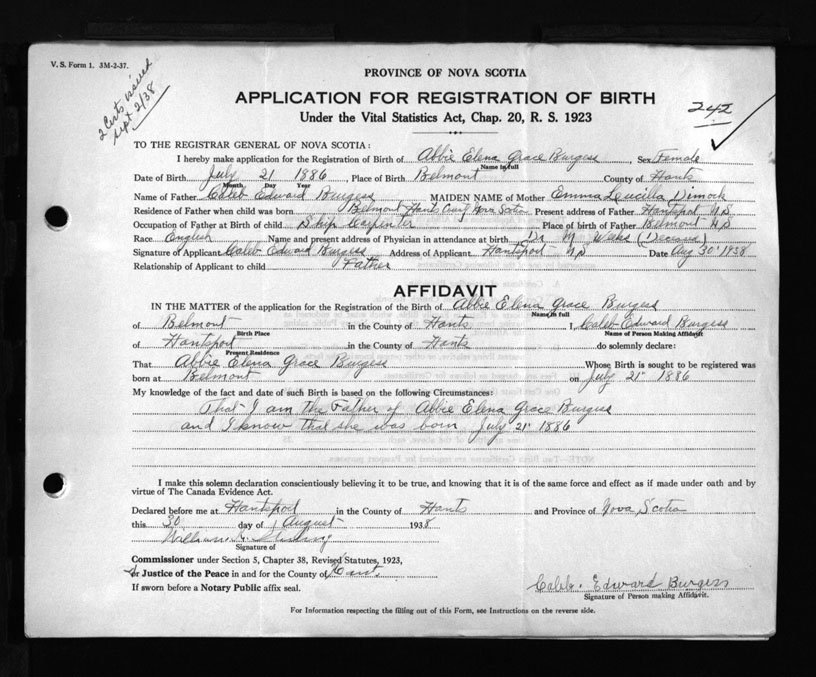 V. S. Form 1. 3M-2-37.
2 Certs issued
Sept 2/38
PROVINCE OF NOVA SCOTIA
APPLICATION FOR REGISTRATION OF BIRTH
242
Under the Vital Statistics Act, Chap. 20, R. S. 1923
TO THE REGISTRAR GENERAL OF NOVA SCOTIA:
I hereby make application for the Registration of Birth of Abbie Elena Grace Burgess, Sex Female
Name in full
Date of Birth July 21 1886, Place of Birth Belmont County of Hants
Month Day Year
Name of Father Caleb Edward Burgess MAIDEN NAME of Mother Emma Leucilla Dimock
Residence of Father when child was born Belmont Hants County Nova Scotia Present address of Father Hantsport N S
Occupation of Father at Birth of child Ship Carpinter Place of birth of Father Belmont N S
Race English Name and present address of Physician in attendance at birth Dr M Weeks (Deceased)
Signature of Applicant Caleb Edward Burgess Address of Applicant Hantsport N S Date Aug 30 1938
Relationship of Applicant to child Father
AFFIDAVIT
IN THE MATTER of the application for the Registration of the Birth of Abbie Elena Grace Burgess
Name in full
of Belmont in the County of Hants I, Caleb Edward Burgess
Birth Place Name of Person Making Affidavit
of Hantsport in the County of Hants do solemnly declare:
Present Residence
That Abbie Elena Grace Burgess Whose Birth is sought to be registered was
born at Belmont on July 21st 1886
My knowledge of the fact and date of such Birth is based on the following Circumstances:
That I am the Father of Abbie Elena Grace Burgess
and I know that she was born July 21st 1886
I make this solemn declaration conscientiously believing it to be true, and knowing that it is of the same force and effect as if made under oath and by
virtue of The Canada Evidence Act.
Declared before me at Hantsport in the County of Hants and Province of Nova Scotia
this 30 day of August 1938
William
Signature of
Commissioner under Section 5, Chapter 38, Revised Statutes, 1923,
or Justice of the Peace in and for the County of Hants
If sworn before a Notary Public affix seal.
Caleb. Edward Burgess
Signature of Person making Affidavit.
For Information respecting the filling out of this Form, see Instructions on the reverse side.